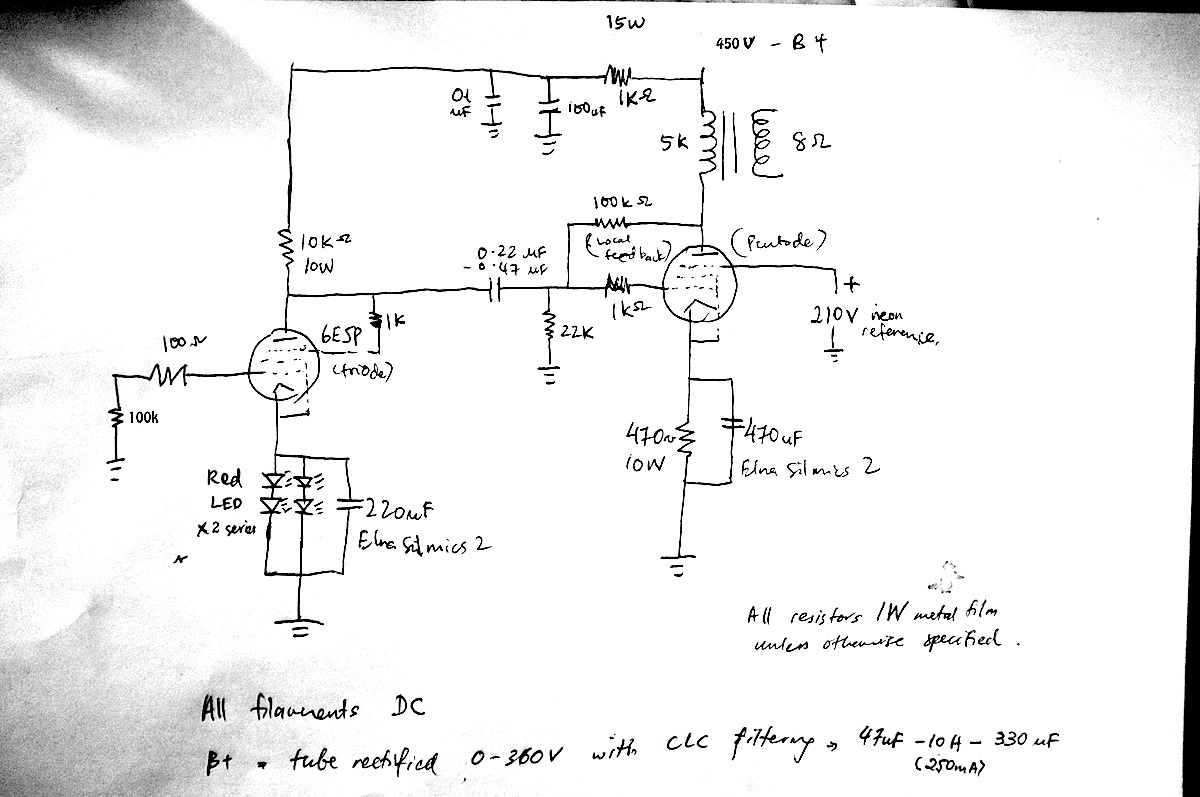 15W
450V - B+
01
uF
100uF
1KΩ
5K
8Ω
100KΩ
(Local
feedback)
(Pentode)
10KΩ
10W
0.22 uF
- 0.47 uF
1KΩ
+
210V neon
reference.
1K
6E5P
(triode)
22K
100Ω
100k
470Ω
10W
470uF
Elna Silmics 2
Red
LED
X2 series
220uF
Elna Silmics 2
All resistors 1W metal film
unless otherwise specified.
All filaments DC
B+ = tube rectified 0-360V with CLC filtering → 47uF -10H - 330 uF
(250mA)